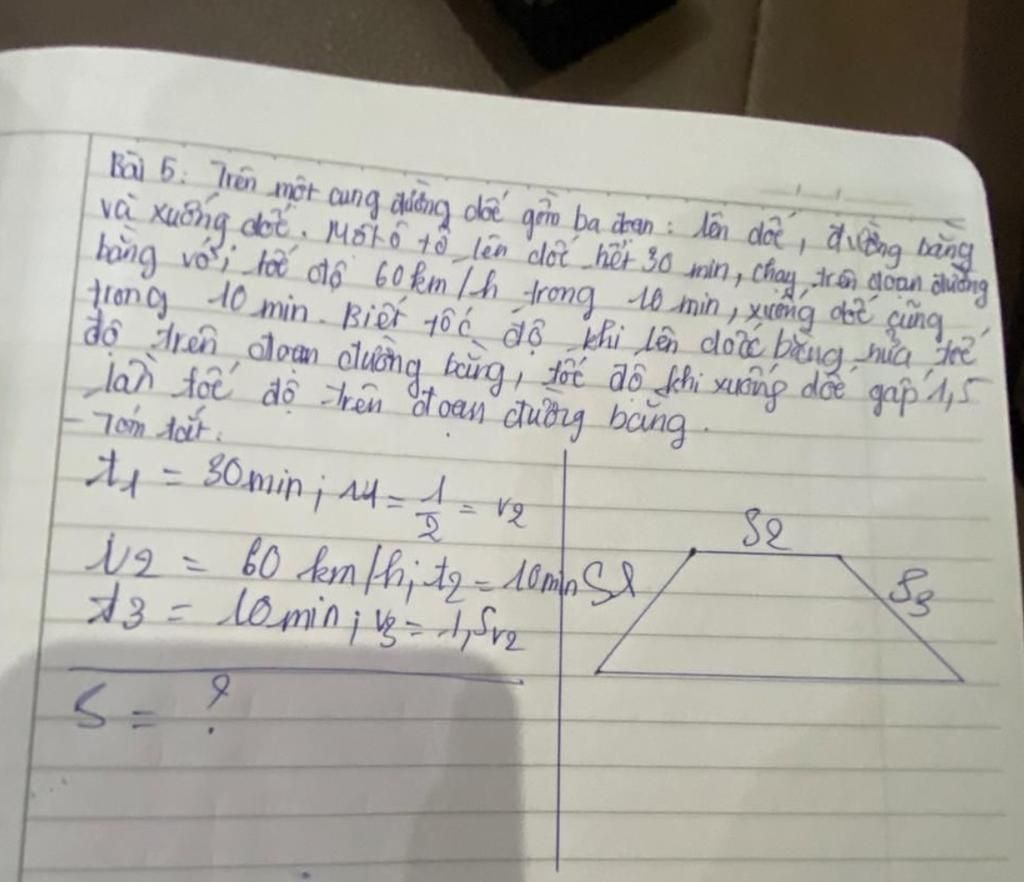 Bài 5: Trên một cung đường dốc gồm ba đoạn: lên dốc, đường bằng
và xuống dốc. Một ô tô lên dốc hết 30 min, chạy trên đoạn đường
bằng với tốc độ 60 km/h trong 10 min, xuống dốc cũng
trong 10 min. Biết tốc độ khi lên dốc bằng nửa tốc
độ trên đoạn đường bằng, tốc độ khi xuống dốc gấp 1,5
lần tốc độ trên đoạn đường bằng.
- Tóm tắt:
t1 = 30 min; v1 = 1/2 = v2
v2 = 60 km/h; t2 = 10 min
t3 = 10 min; v3 = 1,5v2
S = ?
S2
S1
S3